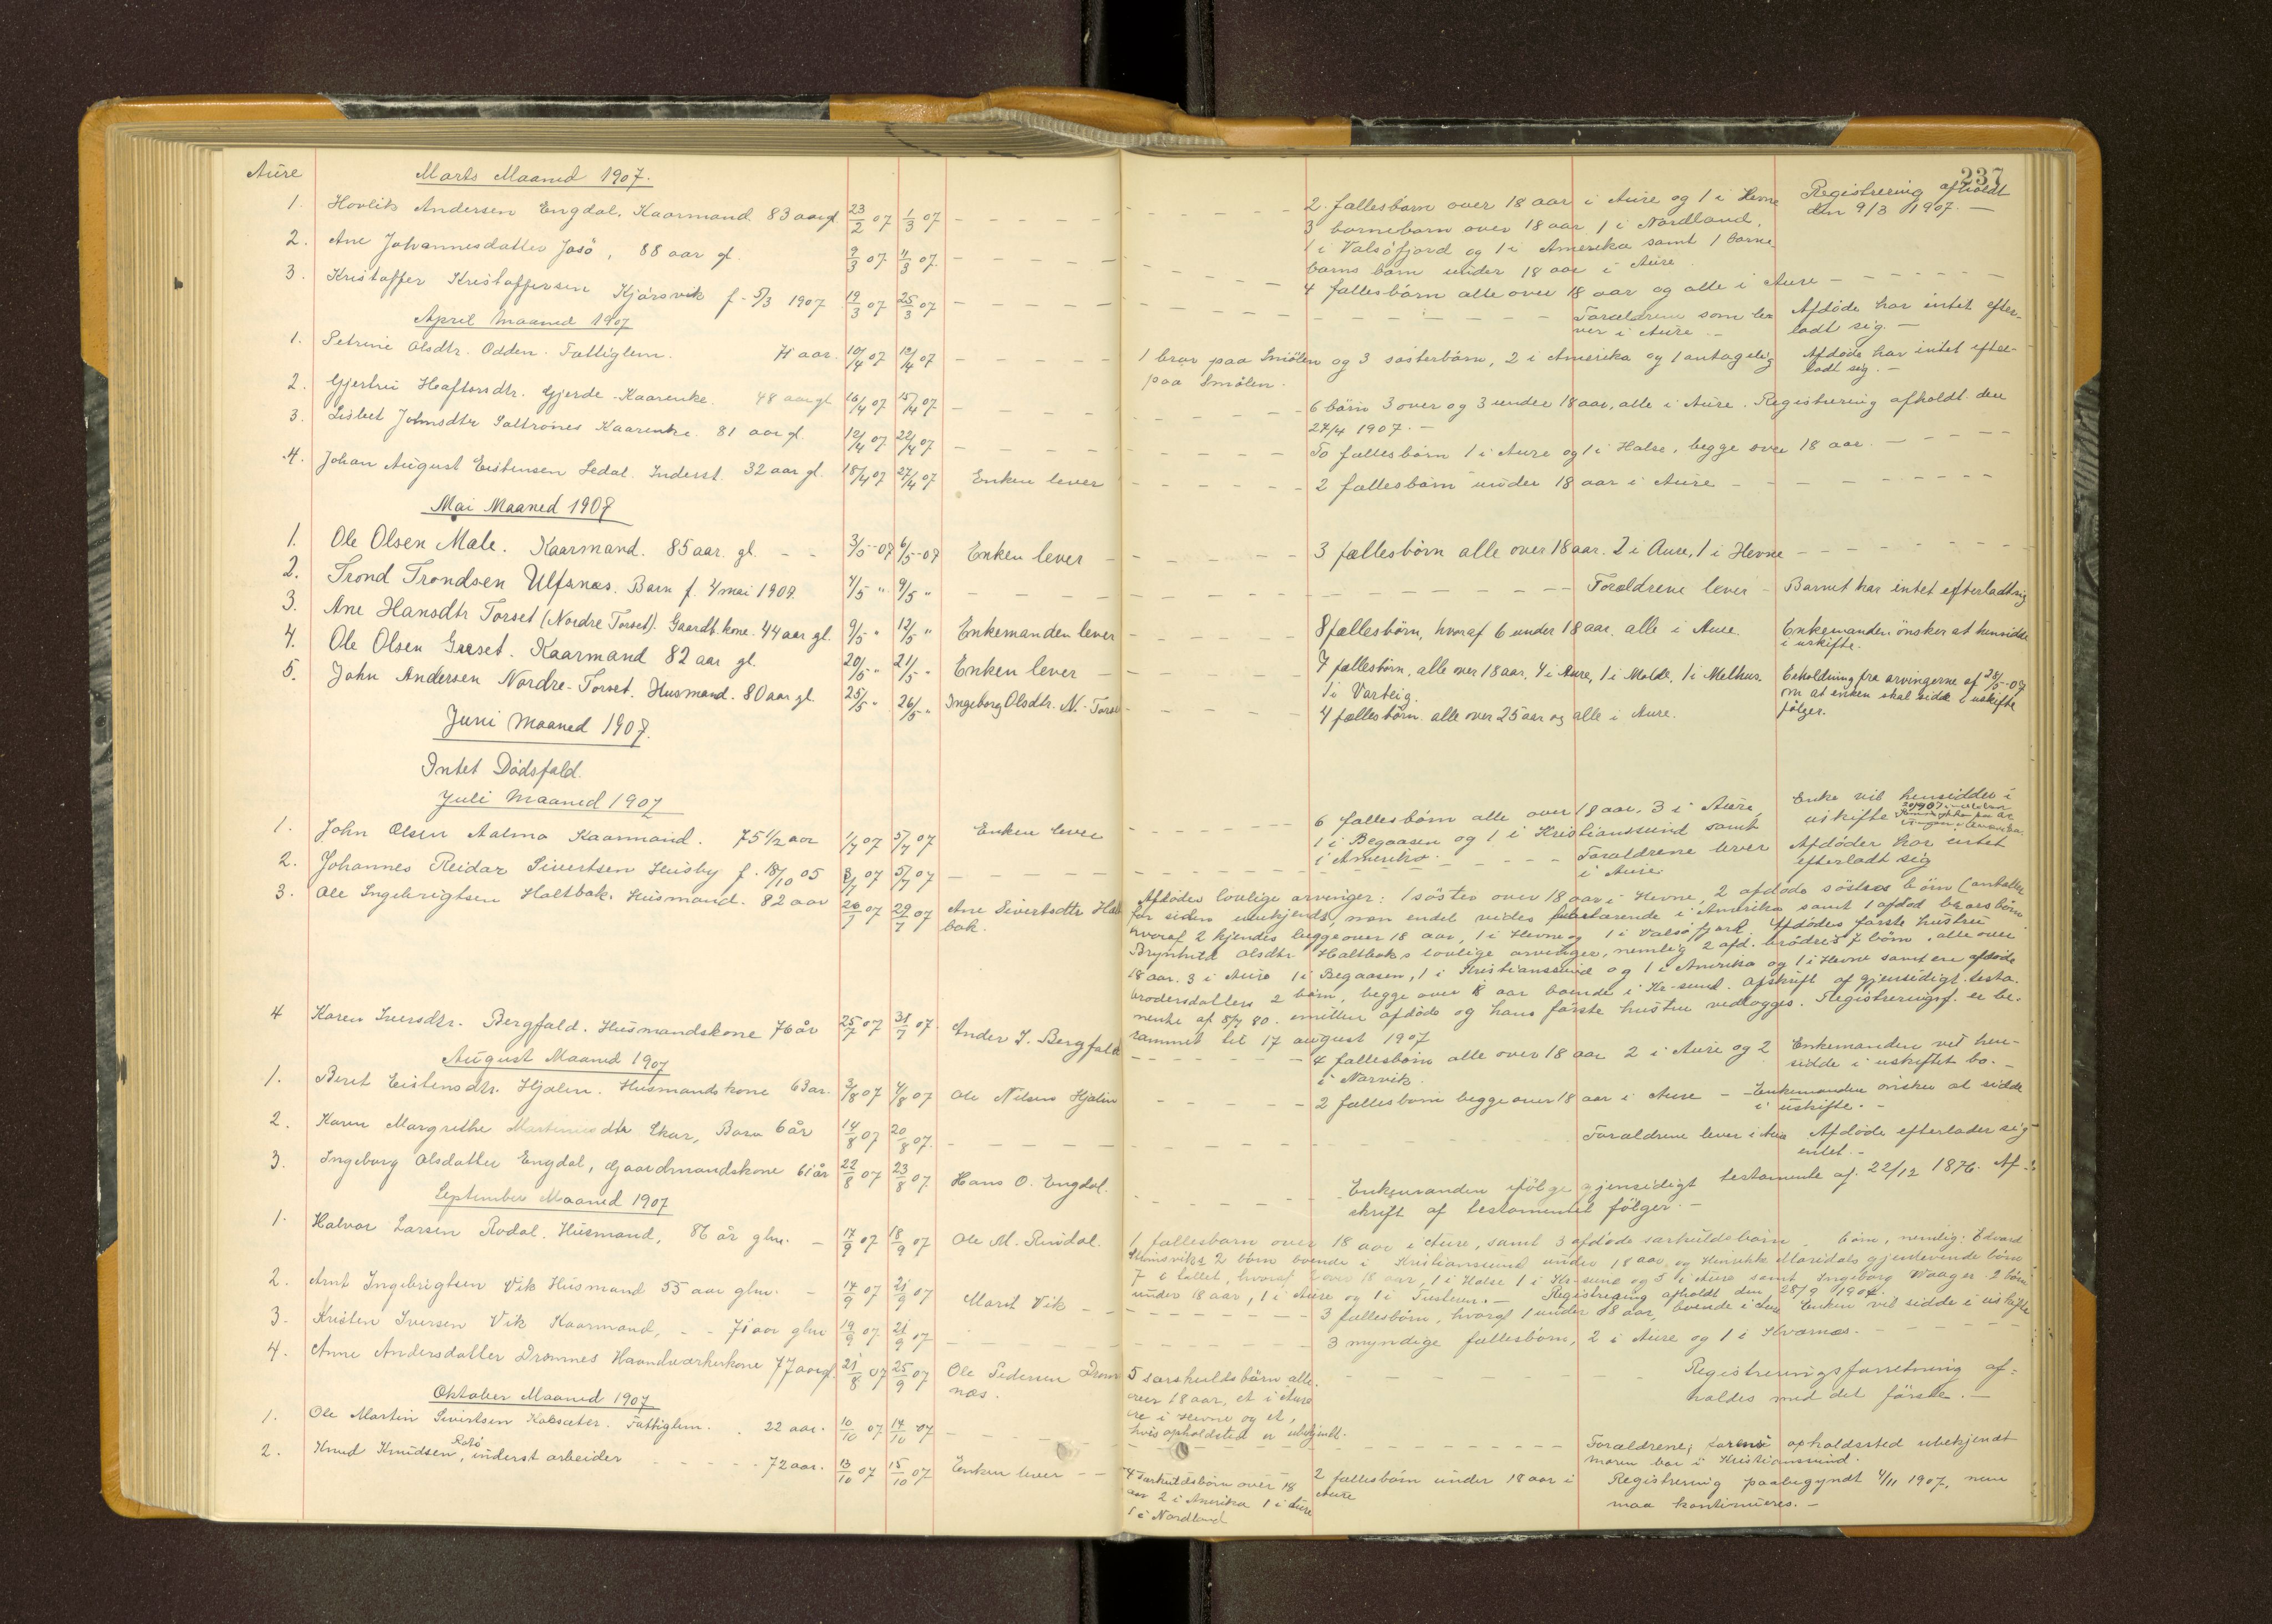 237
Aure
Marts Maaned 1907.
1. Hovlik Andersen Engdal. Kaarmand 83 aar gl. 23/2 07 1/3 07 - - - - - 2 fællesbørn over 18 aar i Aure og 1 i Hevne Registrering afholdt
3 barnebarn over 18 aar 1 i Nordland, den 9/3 1907. -
1 i Valsöfjord og 1 i Amerika samt 1 barne
barns barn under 18 aar i Aure.
2. Ane Johannesdatter Jøsö, 88 aar gl. 9/3 07 11/3 07. - - - - - 4 fællesbörn alle over 18 aar og alle i Aure - - - - -
3. Kristoffer Kristoffersen Kjörsvik f. 5/3 1907 19/3 07 25/3 07 - - - - - Forældrene som le Afdöde har intet efter-
ver i Aure - ladt sig. -
April Maaned 1907
1. Petrine Olsdtr. Odden. Fattiglem. 71 aar. 10/4 07 12/4 07 - - - - - 1 bror paa Smölen og 3 sösterbörn, 2 i Amerika og 1 antagelig Afdöde har intet efter-
paa Smölen. ladt sig. -
2. Gjertru Haftorsdtr. Gjerde. Kaarenke. 48 aar gl 10/4 07 15/4 07 - - - - - 6 börn 3 over og 3 under 18 aar, alle i Aure. Registrering afholdt den
27/4 1907. -
3. Lisbet Johnsdtr Saltrönes Kaarenke. 81 aar gl. 12/4 07 22/4 07 - - - - - To fællesbörn 1 i Aure og 1 i Halse, begge over 18 aar. - - - -
4. Johan August Eistensen Sedal. Inderst. 32 aar gl. 18/4 07 27/4 07 Enken lever - - - - - 2 fællesbörn under 18 aar i Aure - - - - -
Mai Maaned 1907
1. Ole Olsen Male. Kaarmand. 85 aar. gl. - - 3/5-07 6/5-07 Enken lever - - - - - 3 fællesbörn alle over 18 aar. 2 i Aure, 1 i Hevne - - - - -
2. Trond Trondsen Ulfsnæs. Barn f. 4 mai 1907. 7/5 " 9/5 " - - - - - Forældrene lever - Barnet har intet efterladt sig
3. Ane Hansdtr Torset (Nordre Torset). Gaardb. kone. 44 aar gl. 9/5 " 12/5 " Enkemanden lever - - - - - 8 fællesbörn, hvoraf 6 under 18 aar, alle i Aure. Enkemanden önsker at hensidde
i uskifte.
4. Ole Olsen Grøset. Kaarmand 82 aar gl. 20/5 " 21/5 " Enken lever - - - - - 7 fællesbörn, alle over 18 aar, 4 i Aure, 1 i Molde, 1 i Melhus Beholdning fra arvingerne af 28/5-07
1 i Varteig om at enken skal sidde i uskifte
fölger.
5. John Andersen Nordre-Torset. Husmand. 80 aar gl. 25/5 " 26/5 " Ingeborg Olsdtr. N.-Torset - - - - - 4 fællesbörn alle over 25 aar og alle i Aure.
Juni Maaned 1907.
Intet Dödsfald.
Juli Maaned 1907
1. John Olsen Aalmo Kaarmand. 75 1/2 aar 1/7 07 5/7 07 Enken lever - - - - - 6 fællesbörn alle over 18 aar, 3 i Aure, Enke vil hensidde i
1 i Begaasen og 1 i Kristianssund samt uskifte
i Amerika
2. Johannes Reidar Sivertsen Husby f. 18/10 05 3/7 07 5/7 07 - - - - - Forældrene lever Afdöder har intet
i Aure. efterladt sig
3. Ole Ingebrigtsen Haltbak. Husmand. 82 aar 20/7 07 29/7 07 Ane Sivertsdtr Halt
bak.
Afdödes lovlige arvinger: 1 söster over 18 aar i Hevne, 2 afdöde söstres börn (antallet
for siden uukjendt, man endel vides værende i Amerika samt 1 afdöd brorsbörn
hvoraf 2 kjendes begge over 18 aar, 1 i Hevne og 1 i Valsöfjord. Afdödes förste hustru
Brynhild Olsdtr Haltbaks lovlige arvinger, nemlig 2 afd. brödres 7 börn, alle over
18 aar. 3 i Aure 1 i Begaasen, 1 i Kristianssund og 1 i Amerika og 1 i Hevne samt en afdöde
brodersdatters 2 börn, begge over 18 aar boende i Kr-sund. Afskrift af gjensidigt testa-
mente af 8/7 80. emellem afdöde og hans förste hustru vedlægges. Registreringsf. er be-
rammet til 17 august 1907
4 Karen Iversdtr. Bergfald. Husmandskone 76 år 25/7 07 31/7 07. Ander I. Bergfald - - - - - 4 fællesbörn alle over 18 aar 2 i Aure og 2 Enkemanden vil hen-
i Narvik. sidde i uskiftet bo. -
August Maaned 1907
1. Berit Eistensdtr. Hjælen. Husmandskone 63 ar. 3/8 07 4/8 07 Ole Nilsen Hjælen - - - - - 2 fællesbörn begge over 18 aar i Aure - Enkemanden önsker at sidde
i uskifte. -
2. Karen Margrethe Martinusdtr Skar, Barn 6 år 14/8 07 20/8 07. - - - - - Forældrene lever i Aure Afdöde efterlader sig
intet. -
3. Ingeborg Olsdatter Engdal, Gaardmandskone 61 år 22/8 07 23/8 07. Hans O. Engdal. - - - - - Enkemanden ifölge gjensidigt testamente af 22/12 1876. Af-
skrift af testamentet fölger. -
September Maaned 1907
1. Halvor Larsen Rodal. Husmand, 86 år glm. - 17/9 07 18/9 07 Ole M. Rindal. 1 fællesbarn over 18 aar i Aure, samt 3 afdöde særkuldsbörn börn, nemlig: Edvard
2 börn boende i Kristianssund under 18 aar, og Henrikke Maridals gjenlevende börn
7 i tallet, hvoraf over 18 aar, 1 i Halse 1 i Kr-sund og 5 i Aure samt Ingeborg Waagen 2 börn
under 18 aar, 1 i Aure og 1 i Tusteren. - Registrering afholdt den 28/9 1907.
2. Arnt Ingebrigtsen Vik Husmand 55 aar glm. - 14/9 07 21/9 07 Marit Vik - - - - - 3 fællesbörn, hvoraf 1 under 18 aar, boende i Aure Enken vil sidde i uskifte
3. Kristen Iversen Vik Kaarmand, - - 71 aar glm 19/9 07. 21/9 07 - - - - - 3 myndige fællesbörn, 2 i Aure og 1 i Kvernæs. - - - - -
4. Anne Andersdatter Dromnes Haandværkerkone 77 aar gl. 21/8 07 25/9 07 Ole Pedersen Drom
næs.
5 særskuldsbörn alle. - - - - - Registreringsforretning af-
over 18 aar, et i Aure holdes med det förste. -
i Hevne og et,
hvis opholdsted er ubekjendt.
Oktober Maaned 1907
1. Ole Martin Sivertsen Kolsæter. Fattiglem. 22 aar. 10/10 07 14/10 07 - - - - - Forældrene, farens opholdssted ubekjendt
moren bor i Kristianssund.
2. Knud Knudsen Rotö, inderst arbeider - - - - 72 aar. 13/10 07 15/10 07 Enken lever - - 4 særkuldsbörn over 18 2 fællesbörn under 18 aar i Registrering paabegyndt 4/11 1907, men
aar 2 i Amerika 1 i Aure Aure maa kontinueres. -
1 i Nordland